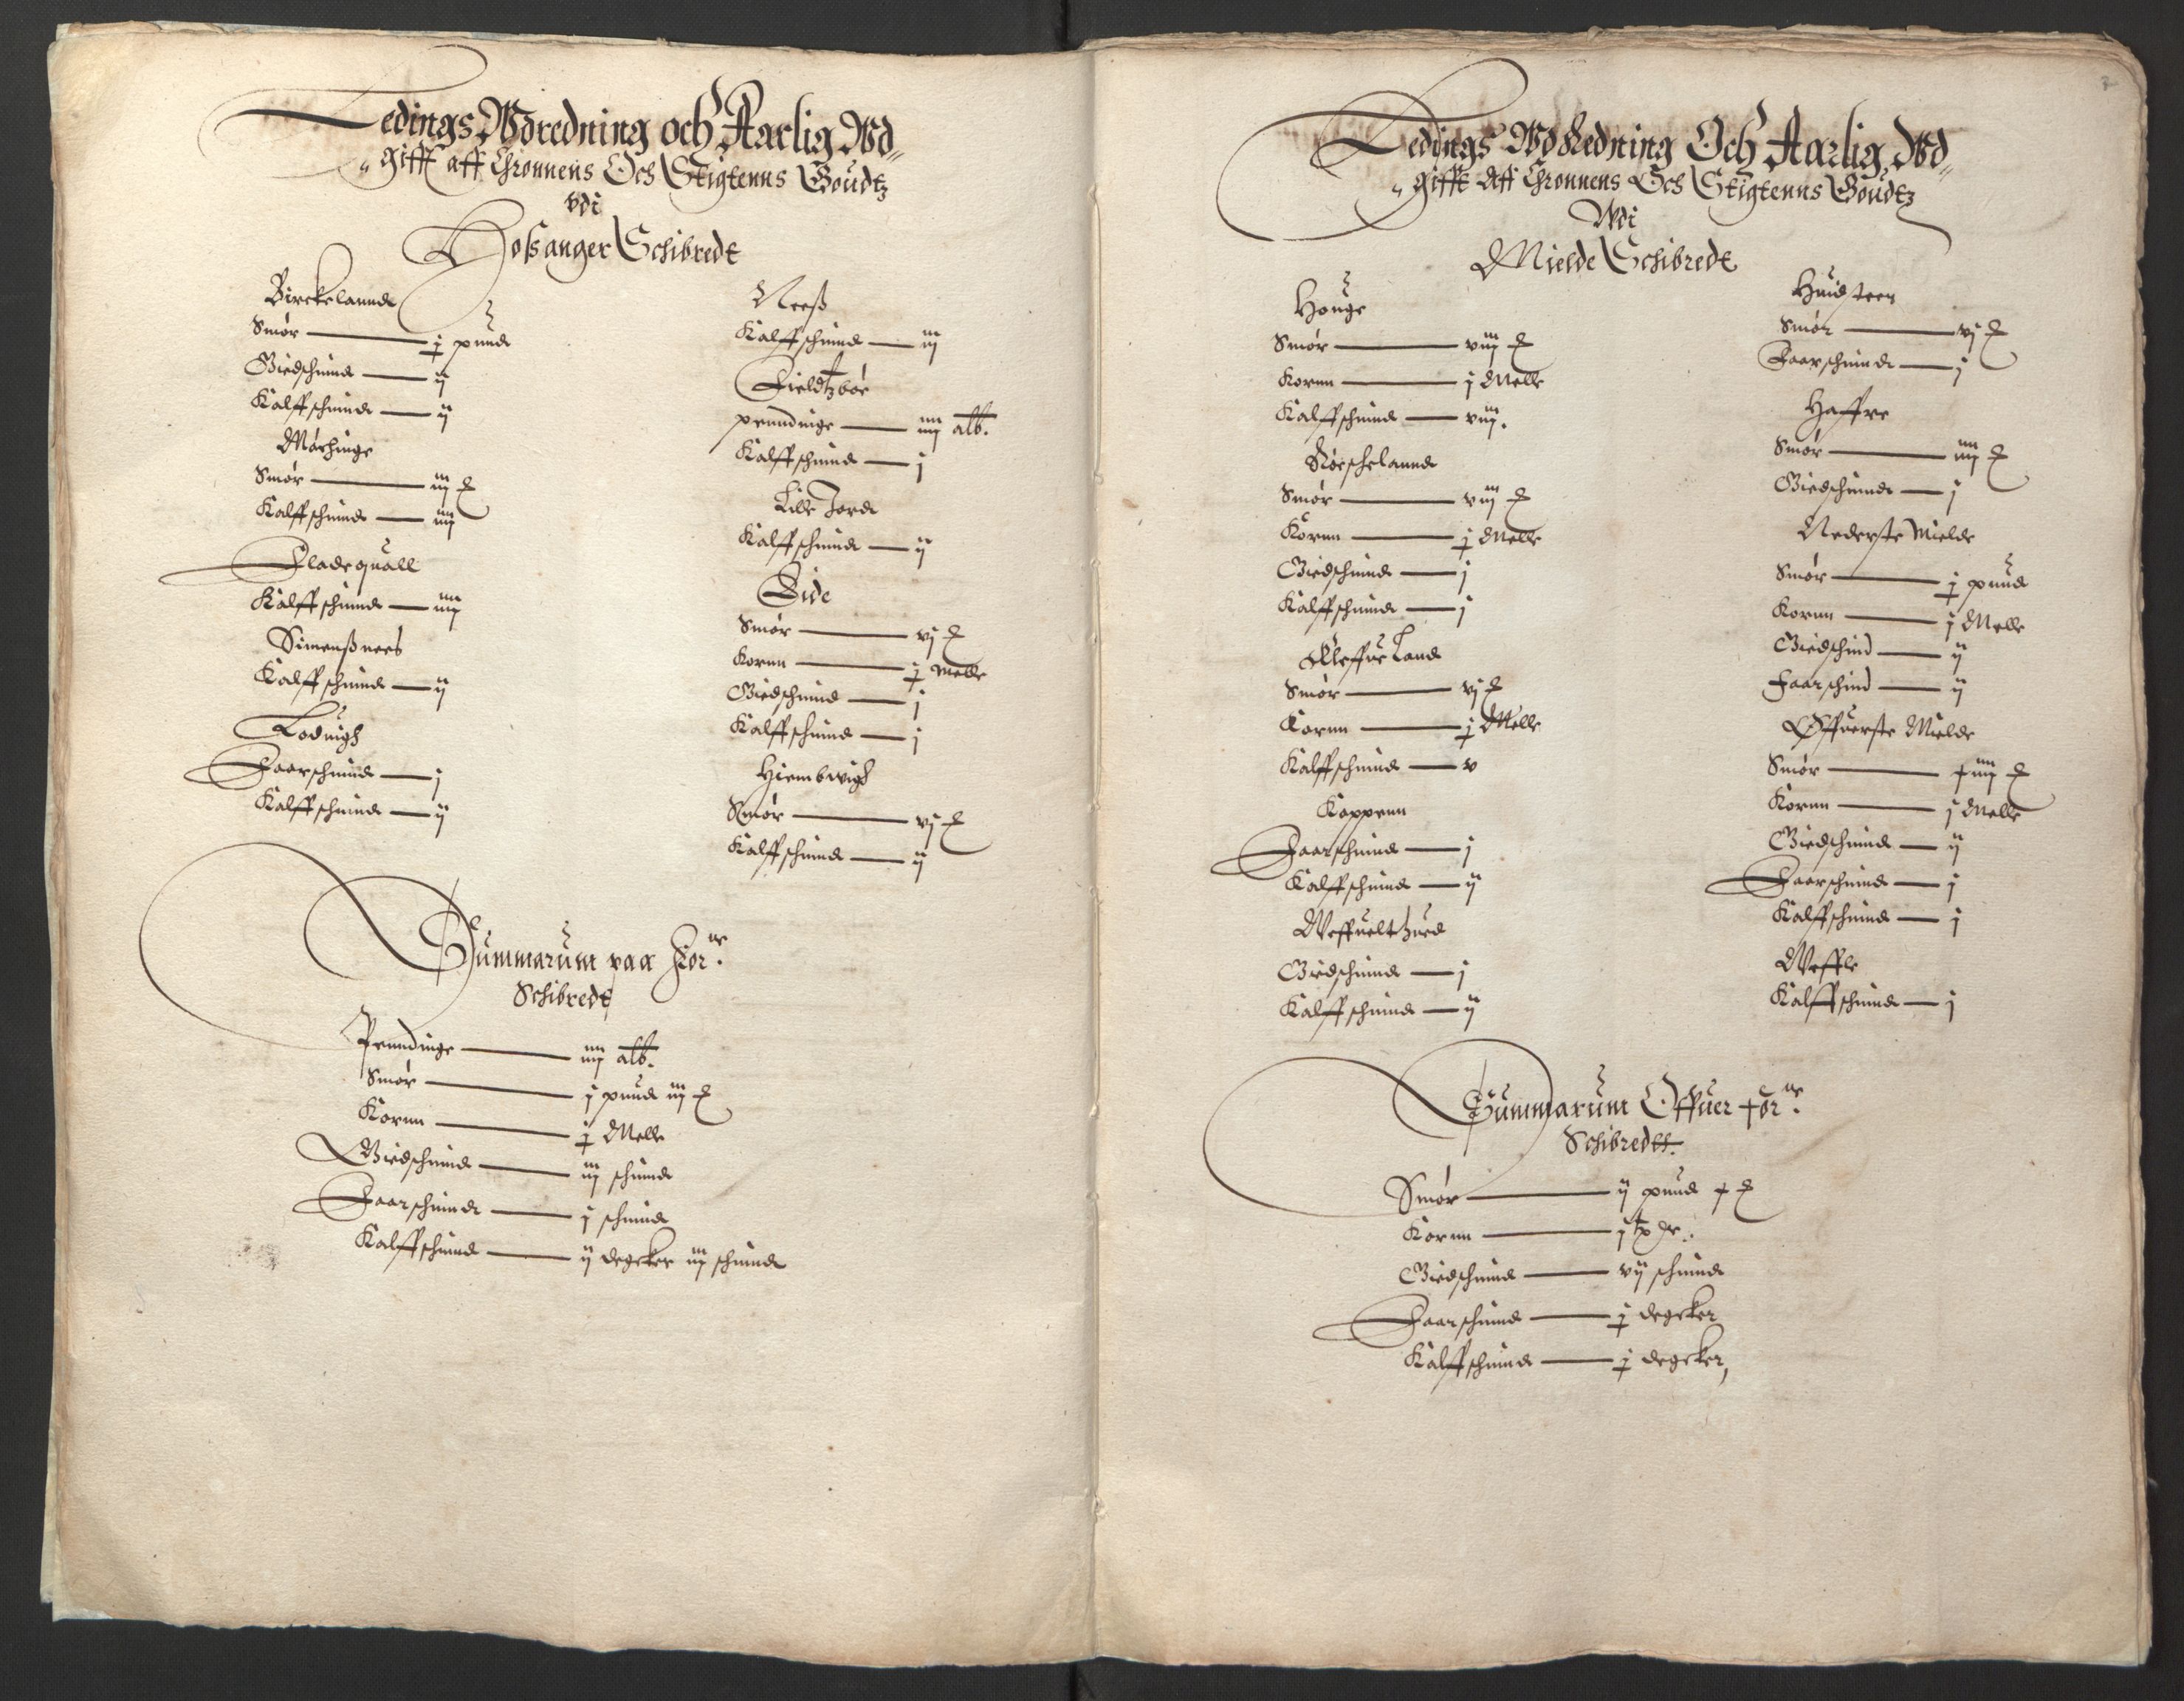 Ledings Wdredning och Aarlig Wd„
„gifft aff Chronnens Och Stigtenns Goudtz
vdi
Hoßanger Schibredt
Birckelannd
Smør — j pund
Giedschiind — ij
Kalffschiind — ij
Møchinge
Smør — iij
Kalffschiind — iiij
Fladequall
Kalffschiind — iiij
Simenßnees
Kalffschiind — ij
Loduigh
Faarschiind — j
Kalffschiind — ij
Neeß
Kalffschiind — iij
Fieldtzboe
penndinge — iiij alb.
Kalffschiind — j
Lille Jord
Kalffschiind — ij
Eide
Smør — vj
Kornn — j Melle
Giedschiind — j
Kalffschiind — j
Hiembuigh
Smør — vj
Kalffschiind — ij
Summarum paa for:ne
Schibredt
Penndinge — iiij alb.
Smør — j pund iij
Kornn — j Melle
Giedschiind — iij schiind
Faarschiind — j schiind
Kalffschiind — ij degcker iij schiind
2
Ledings Wdredning Och Aarlig Wd„
„gifft Aff Chronnens Och Stigtenns Goudtz
Wdi
Mielde Schibredt
Houge
Smør — viij
Kornn — j Melle
Kalffschiind — viij.
Røschelannd
Smør — viij
Kornn — j Melle
Giedschiind — j
Kalffschiind — j
Kleffue Land
Smør — vj
Kornn — j Melle
Kalffschiind — v
Koppenn
Faarschiind — j
Kalffschiind — ij
Giedschiind — j
Kalffschiind — ij
Huidsteen
Smør — vj
Faarschiind — j
Haffre
Smør — iiij
Giedschiind — j
Nederste Mielde
Smør — j pund
Kornn — j Melle
Giedschind — ij
Faarschind — ij
Øffuerste Mielde
Smør — iiij
Kornn — j Melle
Giedschiind — ij
Faarschiind — j
Kalffschiind — j
Kalffschiind — j
Summarum Offuer for:ne
Schibredtt.
Smør — ij pund
Kornn — j
Giedschiind — vij schiind
Faarschiind — j degcker
Kalffschiind — j degcker,